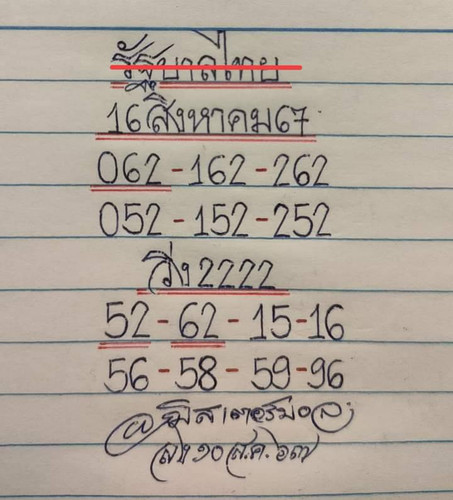 รัฐบาลไทย
16สิงหาคม67
062-162-262
052-152-252
วิ่ง2222
52-62-15-16
56-58-59-96
ส.ค. ๖๗